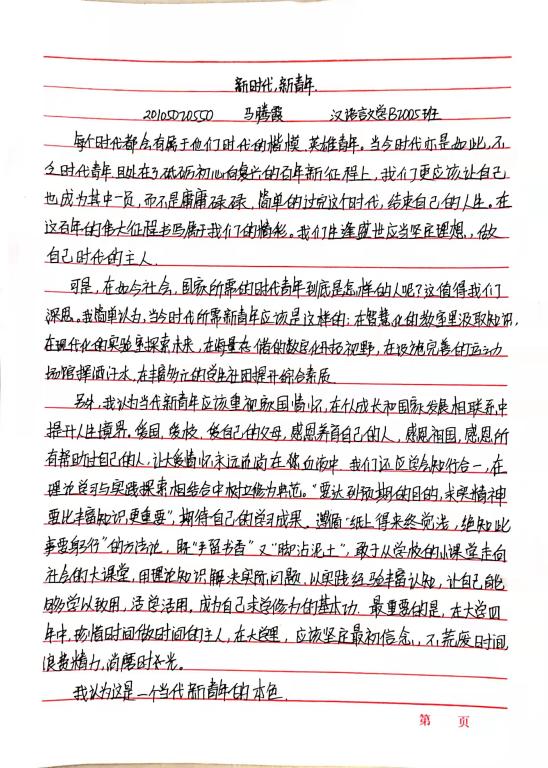 新时代,新青年.
20105020550 马腾霞 汉语言文学B2005班
每个时代都会有属于他们时代的楷模、英雄青年。当今时代亦是如此,不
今时代青年且处在了砥砺初心向复兴的百年新征程上,我们更应该让自己
也成为其中一员,而不是庸庸碌碌、简单的过完这个时代,结束自己的人生。在
这百年的伟大征程书写属于我们的精彩。我们生逢盛世应当坚定理想,做
自己时代的主人.
可是,在如今社会,国家所需的时代青年到底是怎样的人呢?这值得我们
深思。我简单认为,当今时代所需新青年应该是这样的:在智慧化的教室里汲取知识,
在现代化的实验室探索未来,在海量存储的数字化开拓视野,在设施完善的运动
场馆挥洒汗水,在丰富多元的学生社团提升综合素质.
另外,我认为当代新青年应该重视家国情怀,在个人成长和国家发展相联系中
提升人生境界,爱国,爱校,爱自己的父母,感恩养育自己的人,感恩祖国,感恩所
有帮助过自己的人,让大爱情怀永远流淌在你血液中.我们还应学会知行合一,在
理论学习与实践探索相结合中树立修为典范。“要达到预期的目的,求实精神
要比丰富知识更重要”,期待自己的学习成果,遵循“纸上得来终觉浅,绝知此
事要躬行”的方法论,既“手留书香”又“脚沾泥土”,敢于从学校的小课堂走向
社会的大课堂,用理论知识解决实际问题,以实践经验丰富认知,让自己能
够学以致用,活学活用,成为自己求学修为的基本功.最重要的是,在大学四
年中,珍惜时间做时间的主人,在大学里,应该坚定最初信念,不荒废时间,
浪费精力,消磨时光。
我认为这是一个当代新青年的本色.
第 页